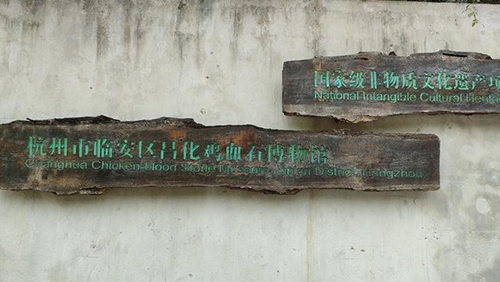 国家级非物质文化遗产项
National Intangible Cultural Herita
杭州市临安区昌化鸡血石博物馆
Changhua Chicken-blood Stone District, Hangzhou